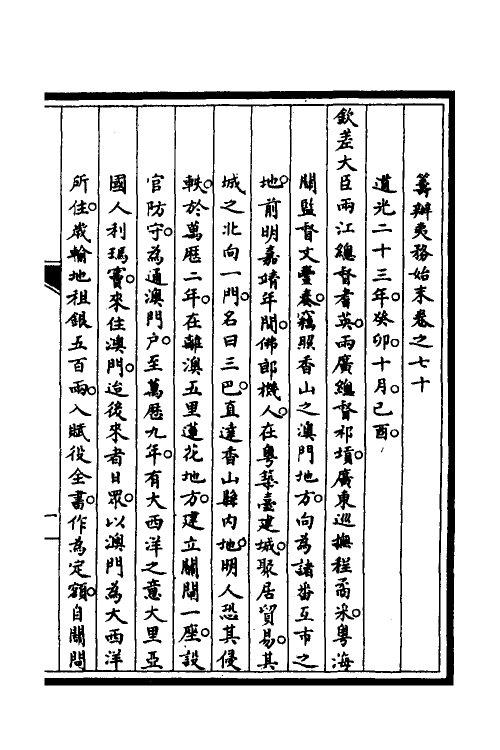 籌辦夷務始末卷之七十
道光二十三年。癸卯。十月。己酉。
欽差大臣兩江總督耆英。兩廣總督祁𡎴。廣東巡撫程矞采。粵海
關監督文豐奏。竊照香山之澳門地方。向為諸番互市之
地。前明嘉靖年間。佛郎機人。在粵築臺建城。聚居貿易。其
城之北向一門。名曰三巴。直達香山縣內地。明人恐其侵
軼。於萬歷二年。在離澳五里蓮花地方。建立關閘一座。設
官防守。為通澳門戶。至萬歷九年。有大西洋之意大里亞
國人利瑪竇。來住澳門。迨後來者日眾。以澳門為大西洋
所住。歲輸地租銀五百兩。入賦役全書。作為定額。自關閘
一